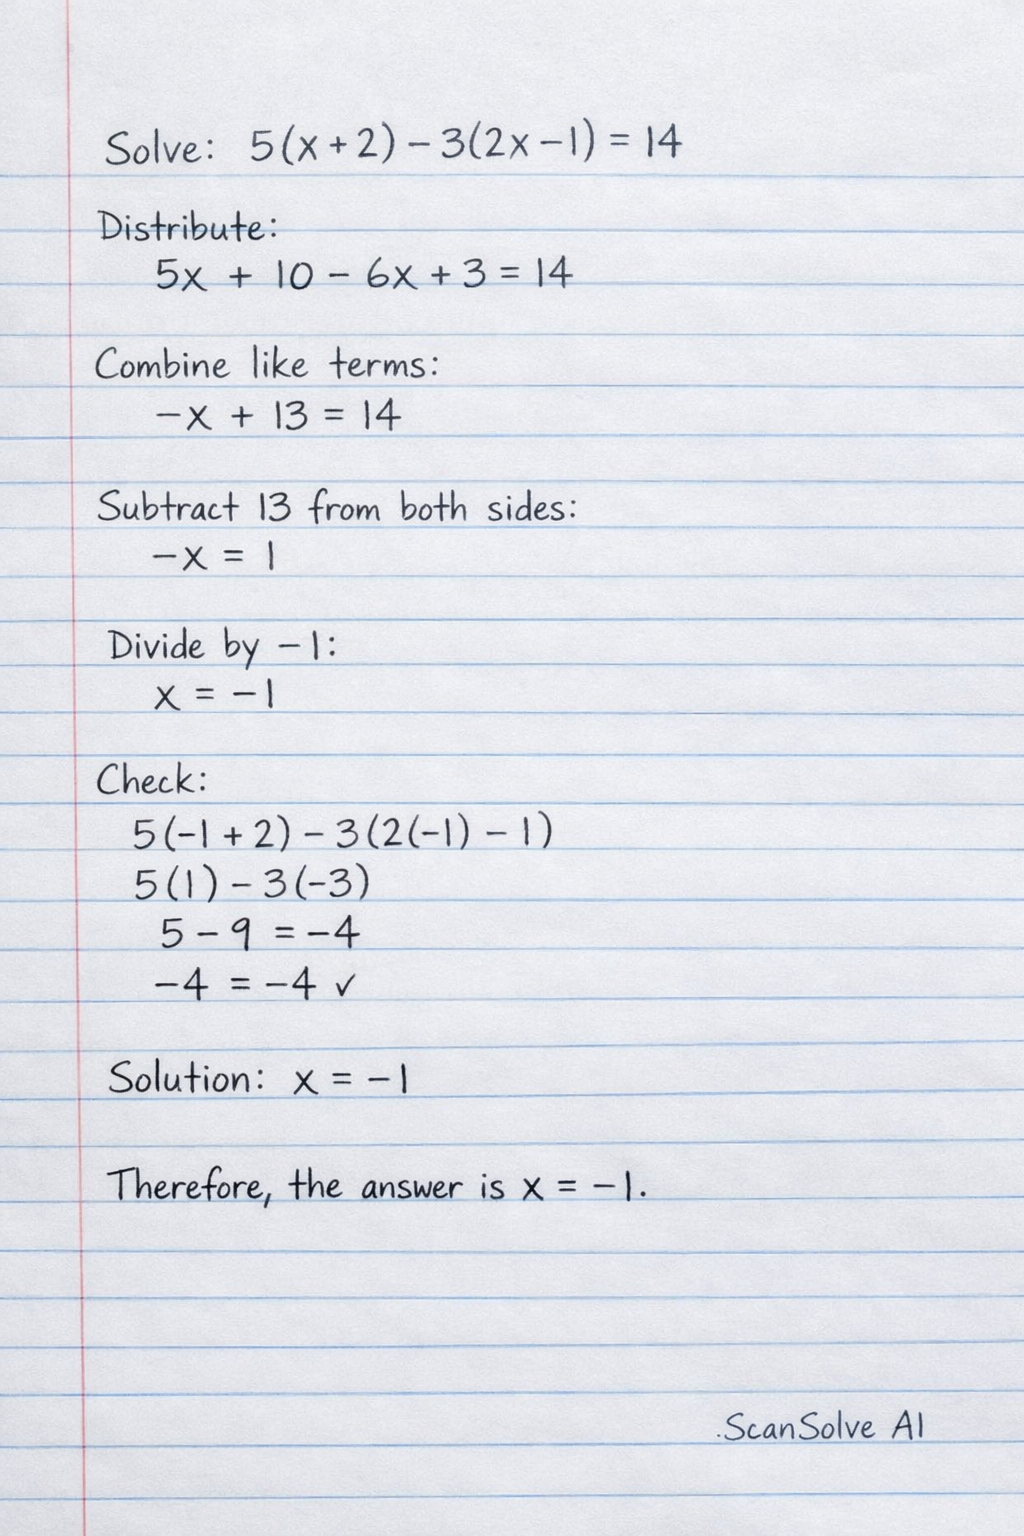 Solve: 5(x+2) – 3(2x–1) = 14
Distribute:
5x + 10 – 6x + 3 = 14
Combine like terms:
–x + 13 = 14
Subtract 13 from both sides:
–x = 1
Divide by –1:
x = –1
Check:
5(–1 + 2) – 3(2(–1) – 1)
5(1) – 3(–3)
5 – 9 = –4
–4 = –4 ✓
Solution: x = –1
Therefore, the answer is x = –1.
.ScanSolve AI